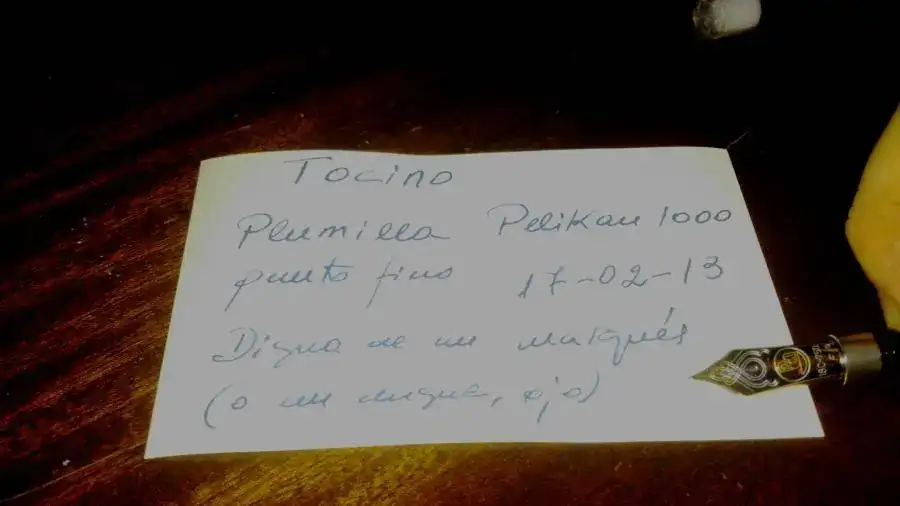 Tocino
Plumilla Pelikan 1000
punto fino 17-02-13
Digna de un marqués
(o un duque, ojo)